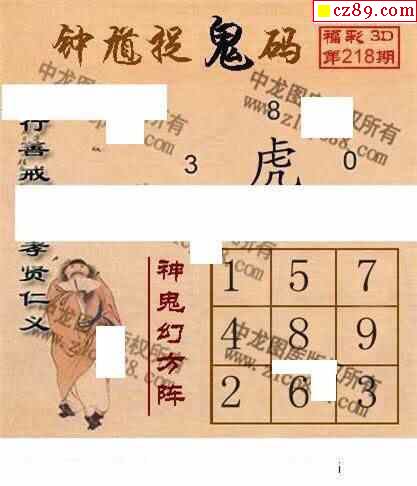 cz89.com
钟馗捉鬼码
福彩3D
第218期
8
3
虎
0
行善戒
孝贤仁义
神鬼幻方阵
1 5 7
4 8 9
2 6 3
中龙图库版权所有
i